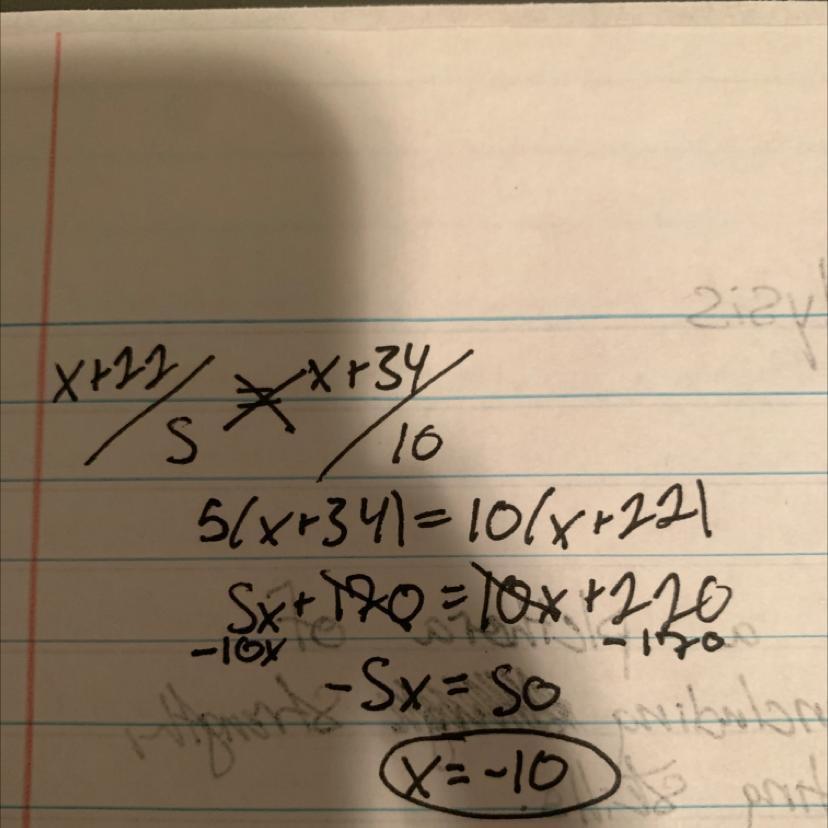 ysis
x+22/5 = x+34/10
5(x+34) = 10(x+22)
5x+170 = 10x+220
-10x -170
-5x = 50
x = -10